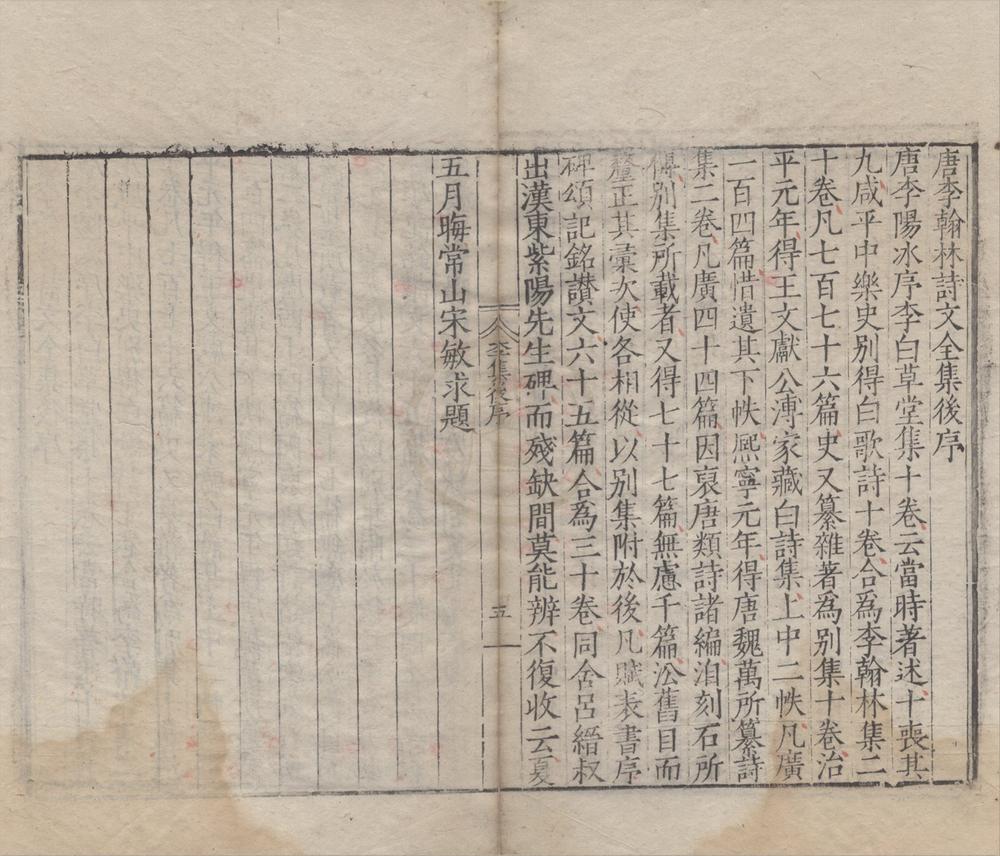 唐李翰林詩文全集後序
唐李陽冰序李白草堂集十卷云當時著述十喪其
九咸平中樂史別得白歌詩十卷合為李翰林集二
十卷凡七百七十六篇史又纂雜著為別集十卷治
平元年得王文獻公溥家藏白詩集上中二帙凡廣
一百四篇惜遺其下帙熈寧元年得唐魏萬所纂詩
集二卷凡廣四十四篇因裒唐類詩諸編洎刻石所
傳別集所載者又得七十七篇無慮千篇㳂舊目而
釐正其彙次使各相從以別集附於後凡賦表書序
碑頌記銘讃文六十五篇合為三十卷同舍呂縉叔
出漢東紫陽先生碑而殘缺間莫能辨不復收云夏
五月晦常山宋敏求題
李集後序
五